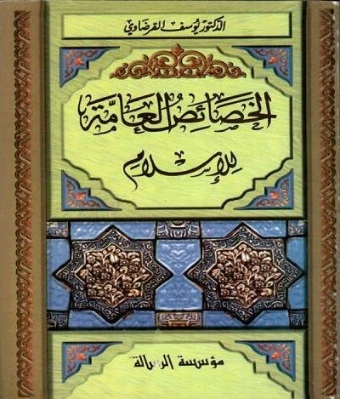 الدكتور يوسف القرضاوي
الخصائص العامة
للإسلام
مؤسسة الرسالة